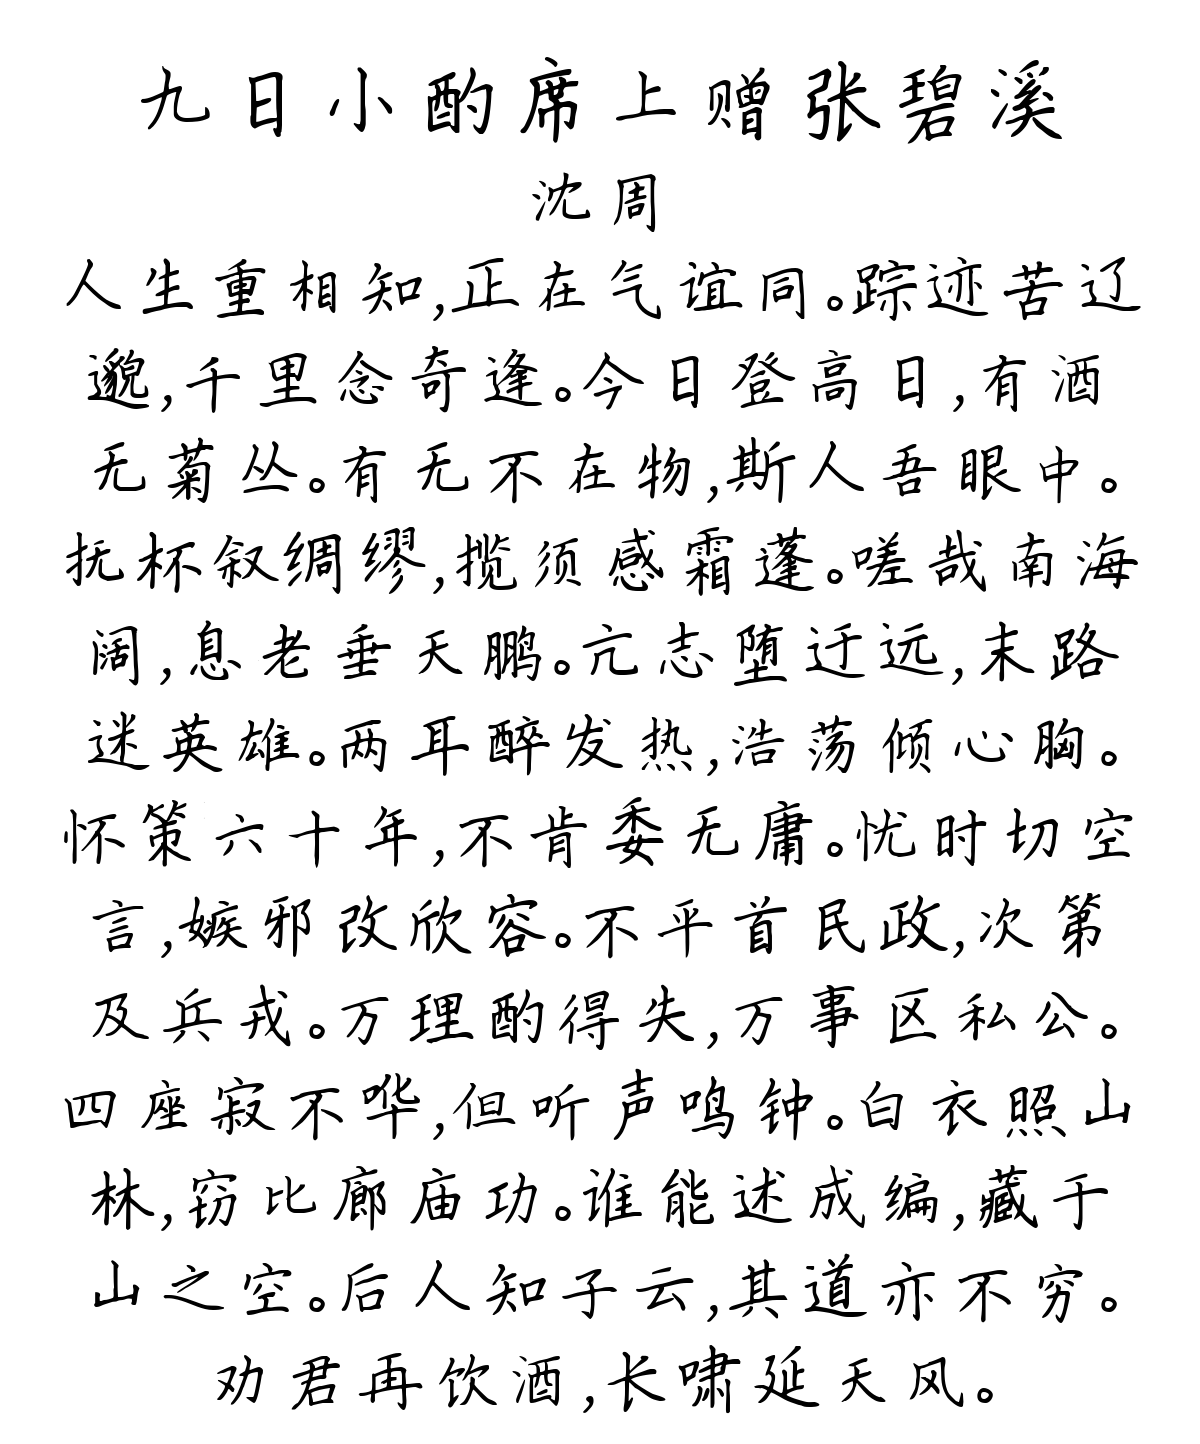 九日小酌席上赠张碧溪
沈周
人生重相知,正在气谊同。踪迹苦辽
邈,千里念奇逢。今日登高日,有酒
无菊丛。有无不在物,斯人吾眼中。
抚杯叙绸缪,揽须感霜蓬。嗟哉南海
阔,息老垂天鹏。亢志堕迂远,末路
迷英雄。两耳醉发热,浩荡倾心胸。
怀策六十年,不肯委无庸。忧时切空
言,嫉邪改欣容。不平首民政,次第
及兵戎。万理酌得失,万事区私公。
四座寂不哗,但听声鸣钟。白衣照山
林,窃比廊庙功。谁能述成编,藏于
山之空。后人知子云,其道亦不穷。
劝君再饮酒,长啸延天风。